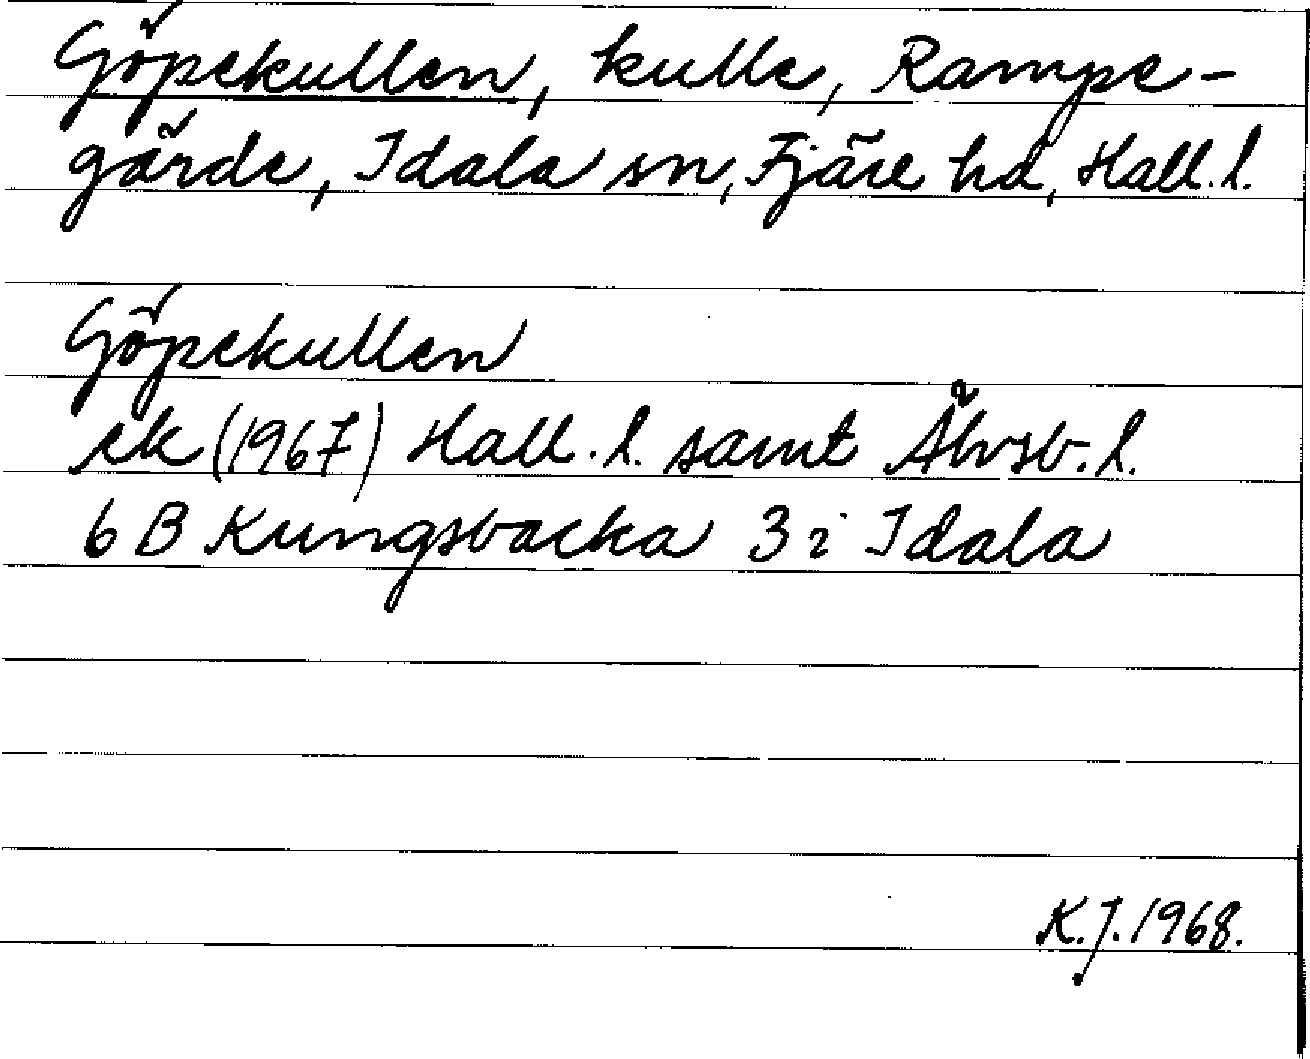 Göpekullen, kulle, Rampe-
gärde, Idala sn, Fjäre hd, Hall. l.
Göpekullen
ek (1967) Hall. l. samt Älvsb. l.
6 B Kungsbacka 3 i Idala
K. J. 1968.